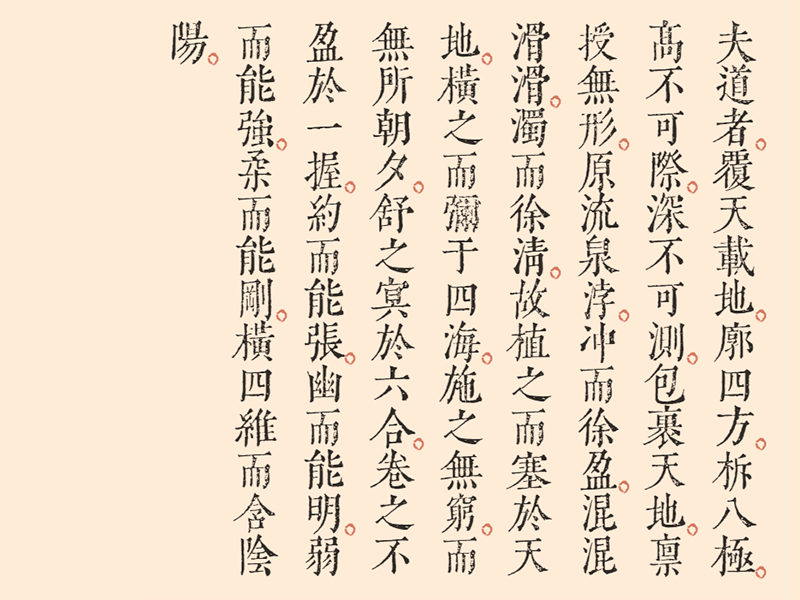 夫道者。覆天載地。廓四方。柝八極。
髙不可際。深不可測。包裹天地。禀
授無形。原流泉浡。冲而徐盈。混混
滑滑。濁而徐清。故植之而塞於天
地。橫之而彌于四海。施之無窮。而
無所朝夕。舒之㝠於六合。卷之不
盈於一握。約而能張。幽而能明。弱
而能強。柔而能剛。橫四維而含陰
陽。